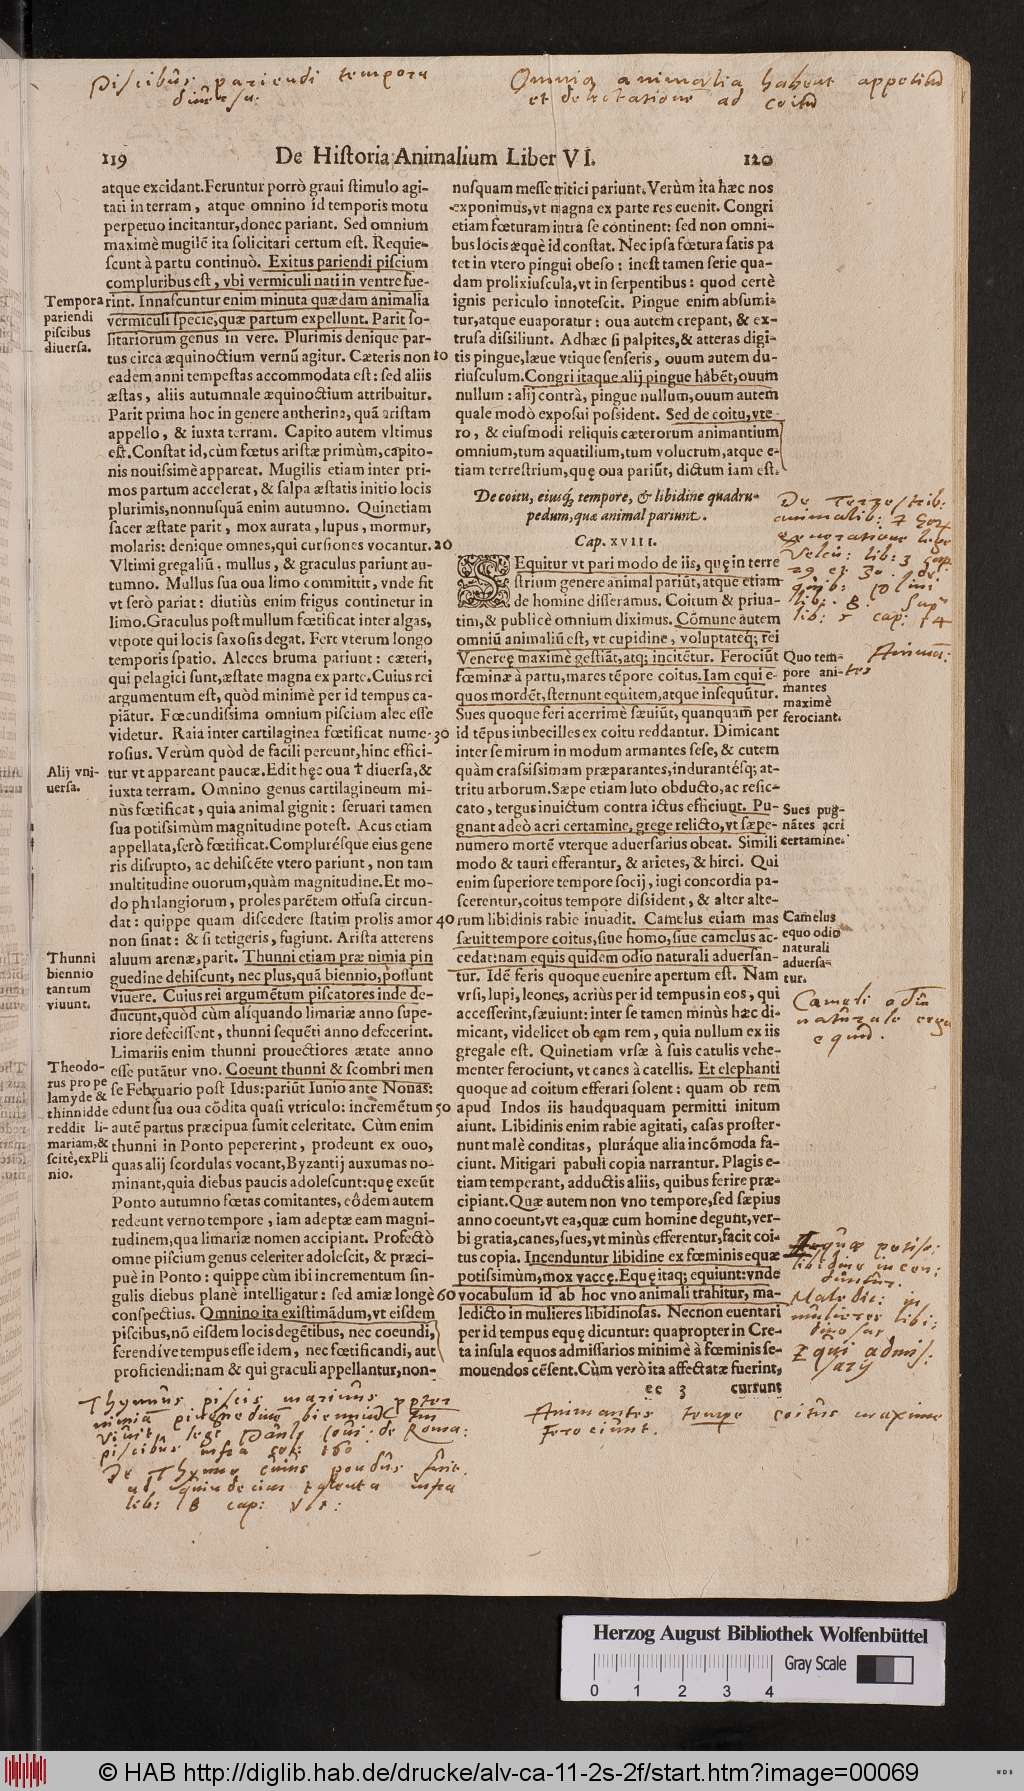 Piscibus pariendi tempora
diuersa:
Omnia animalia habent appetitū
et delectatione ad coitū
119 De Historia Animalium Liber VI. 120
atque excidant. Feruntur porrò graui stimulo agi-
tati in terram, atque omnino id temporis motu
perpetuo incitantur, donec pariant. Sed omnium
maximè mugilē ita solicitari certum est. Requie-
scunt à partu continuò. Exitus pariendi piscium
compluribus est, vbi vermiculi nati in ventre fue-
rint. Innascuntur enim minuta quædam animalia
vermiculi specie, quæ partum expellunt. Parit so-
litariorum genus in vere. Plurimis denique par-
tus circa æquinoctium vernū agitur. Cæteris non 10
eadem anni tempestas accommodata est: sed aliis
æstas, aliis autumnale æquinoctium attribuitur.
Parit prima hoc in genere antherina, quā aristam
appello, & iuxta terram. Capito autem vltimus
est. Constat id, cùm fœtus aristæ primùm, capito-
nis nouissimè appareat. Mugilis etiam inter pri-
mos partum accelerat, & salpa æstatis initio locis
plurimis, nonnusquā enim autumno. Quinetiam
sacer æstate parit, mox aurata, lupus, mormur,
molaris: denique omnes, qui cursiones vocantur. 20
Vltimi gregaliū, mullus, & graculus pariunt au-
tumno. Mullus sua oua limo committit, vnde fit
vt serò pariat: diutiùs enim frigus continetur in
limo. Graculus post mullum fœtificat inter algas,
vtpote qui locis saxosis degat. Fert vterum longo
temporis spatio. Aleces bruma pariunt: cæteri,
qui pelagici sunt, æstate magna ex parte. Cuius rei
argumentum est, quòd minimè per id tempus ca-
piātur. Fœcundissima omnium piscium alec esse
videtur. Raia inter cartilaginea fœtificat nume- 30
rosius. Verùm quòd de facili pereunt, hinc effici-
tur vt appareant paucæ. Edit hęc oua † diuersa, &
iuxta terram. Omnino genus cartilagineum mi-
nùs fœtificat, quia animal gignit: seruari tamen
sua potissimùm magnitudine potest. Acus etiam
appellata, serò fœtificat. Complurésque eius gene
ris disrupto, ac dehiscēte vtero pariunt, non tam
multitudine ouorum, quàm magnitudine. Et mo-
do phalangiorum, proles parētem offusa circun-
dat: quippe quam discedere statim prolis amor 40
non sinat: & si tetigeris, fugiunt. Arista atterens
aluum arenæ, parit. Thunni etiam præ nimia pin
guedine dehiscunt, nec plus, quā biennio, possunt
viuere. Cuius rei argumētum piscatores inde de-
ducunt, quòd cùm alíquando limariæ anno supe-
riore defecissent, thunni sequēti anno defecerint.
Limariis enim thunni prouectiores ætate anno
esse putātur vno. Coeunt thunni & scombri men
se Februario post Idus: pariūt Iunio ante Nonas:
edunt sua oua cōdita quasi vtriculo: incremētum 50
autē partus præcipua sumit celeritate. Cùm enim
thunni in Ponto pepererint, prodeunt ex ouo,
quas alij scordulas vocant, Byzantij auxumas no-
minant, quia diebus paucis adolescunt: quę exeūt
Ponto autumno fœtas comitantes, eôdem autem
redeunt verno tempore, iam adeptæ eam magni-
tudinem, qua limariæ nomen accipiant. Profectò
omne piscium genus celeriter adolescit, & præci-
puè in Ponto: quippe cùm ibi incrementum sin-
gulis diebus planè intelligatur: sed amiæ longè 60
conspectius. Omnino ita existimādum, vt eisdem
piscibus, nō eisdem locis degētibus, nec coeundi,
ferendíve tempus esse idem, nec fœtificandi, aut
proficiendi: nam & qui graculi appellantur, non-
Tempora
pariendi
piscibus
diuersa.
Alij vni-
uersa.
Thunni
biennio
tantum
viuunt.
Theodo-
rus pro pe
lamyde &
thinnide
reddit li-
mariam, &
scitè, ex Pli
nio.
nusquam messe tritici pariunt. Verùm ita hæc nos
exponimus, vt magna ex parte res euenit. Congri
etiam fœturam intra se continent: sed non omni-
bus locis æquè id constat. Nec ipsa fœtura satis pa
tet in vtero pingui obeso: inest tamen serie qua-
dam prolixiuscula, vt in serpentibus: quod certè
ignis periculo innotescit. Pingue enim absumi-
tur, atque euaporatur: oua autem crepant, & ex-
trusa dissiliunt. Adhæc si palpites, & atteras digi-
tis pingue, læue vtique senseris, ouum autem du-
riusculum. Congri itaque alij pingue habēt, ouum
nullum: alij contrà, pingue nullum, ouum autem
quale modò exposui possident. Sed de coitu, vte-
ro, & eiusmodi reliquis cæterorum animantium
omnium, tum aquatilium, tum volucrum, atque e-
tiam terrestrium, quę oua pariūt, dictum iam est.
De coitu, eiusq́; tempore, & libidine quadru-
pedum, quæ animal pariunt.
Cap. XVIII.
SEquitur vt pari modo de iis, quę in terre
strium genere animal pariūt, atque etiam
de homine disseramus. Coitum & priua-
tim, & publicè omnium diximus. Cōmune autem
omniū animaliū est, vt cupidine, voluptateq́; rei
Venereę maximè gestiāt, atq; incitētur. Ferociūt
fœminæ à partu, mares tēpore coitus. Iam equi e-
quos mordēt, sternunt equitem, atque insequūtur.
Sues quoque feri acerrimè sæuiūt, quanquam per
id tēpus imbecilles ex coitu reddantur. Dimicant
inter se mirum in modum armantes sese, & cutem
quàm crassissimam præparantes, indurantésq́; at-
tritu arborum. Sæpe etiam luto obducto, ac resic-
cato, tergus inuictum contra ictus efficiunt. Pu-
gnant adeò acri certamine, grege relicto, vt sæpe-
numero mortē vterque aduersarius obeat. Simili
modo & tauri efferantur, & arietes, & hirci. Qui
enim superiore tempore socij, iugi concordia pa-
scerentur, coitus tempore dissident, & alter alte-
rum libidinis rabie inuadit. Camelus etiam mas
sæuit tempore coitus, siue homo, siue camelus ac-
cedat: nam equis quidem odio naturali aduersan-
tur. Idē feris quoque euenire apertum est. Nam
vrsi, lupi, leones, acriùs per id tempus in eos, qui
accesserint, sæuiunt: inter se tamen minùs hæc di-
micant, videlicet ob eam rem, quia nullum ex iis
gregale est. Quinetiam vrsæ à suis catulis vehe-
menter ferociunt, vt canes à catellis. Et elephanti
quoque ad coitum efferari solent: quam ob rem
apud Indos iis haudquaquam permitti initum
aiunt. Libidinis enim rabie agitati, casas proster-
nunt malè conditas, pluráque alia incōmoda fa-
ciunt. Mitigari pabuli copia narrantur. Plagis e-
tiam temperant, adductis aliis, quibus ferire præ-
cipiant. Quæ autem non vno tempore, sed sæpius
anno coeunt, vt ea, quæ cum homine degunt, ver-
bi gratia, canes, sues, vt minùs efferentur, facit coi-
tus copia. Incenduntur libidine ex fœminis equæ
potissimùm, mox vaccę. Equę itaq; equiunt: vnde
vocabulum id ab hoc vno animali trahitur, ma-
ledicto in mulieres libidinosas. Necnon euentari
per id tempus equę dicuntur: quapropter in Cre-
ta insula equos admissarios minimè à fœminis se-
mouendos cēsent. Cùm verò ita affectatæ fuerint,
ee 3 cursunt
De Terrestrib:
animalib:
lib: 3 cap.
29 et 30.
lib: 5 cap: 14
Anima:
tes
Quo tem-
pore ani-
mantes
maximè
ferociant.
Sues pug-
nātes acri
certamine.
Camelus
equo odio
naturali
aduersa-
tur.
Cameli odiū
naturale erga
equū.
Equæ potiss:
libidine incen:
duntur.
Maledic: in
mulieres libi:
dinosas
Equi admis:
sarij
Thynnus piscis marinus propter
nimia pinguedine biennio tm
viuit, lege Pauli Ioui: de Roma:
piscibus infra fol: 160
De Thynno cuius pondus fuit
ad quindecim talenta infra
lib: 8 cap:
Animantes tempe coitus maxime
ferociunt.
Herzog August Bibliothek Wolfenbüttel
Gray Scale
0 1 2 3 4
© HAB http://diglib.hab.de/drucke/alv-ca-11-2s-2f/start.htm?image=00069